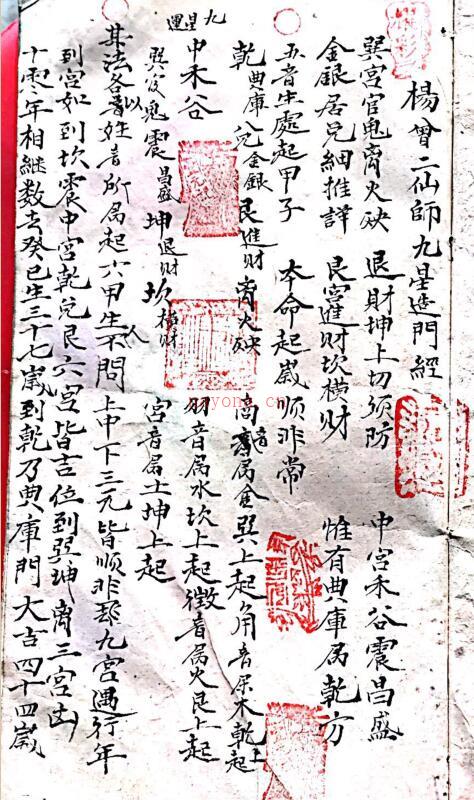 九星運
楊曾二仙師九星造門經
中宮禾谷震昌盛
巽宮官鬼离火殃 退財坤上切須防
惟有典庫属乾方
金銀居兌細推詳 艮宮進財坎橫財
五音生處起甲子 本命起歲順非常
乾典庫 兌金銀 艮進財 离火殃 商音属金巽上起角音属木乾上起
中禾谷 羽音属水坎上起徵音属火艮上起
巽官鬼 震昌盛 坤退財 坎橫財 宮音属土坤上起
其法各以姓音所属起六甲生人不問上中下三元皆順非却九宮遇行年
到宮如到坎震中宮乾兌艮六宮皆吉位到巽坤离三宮凶
十零年相継数去癸巳生三十七歲到乾乃典庫門大吉四十四歲
nayong.cn